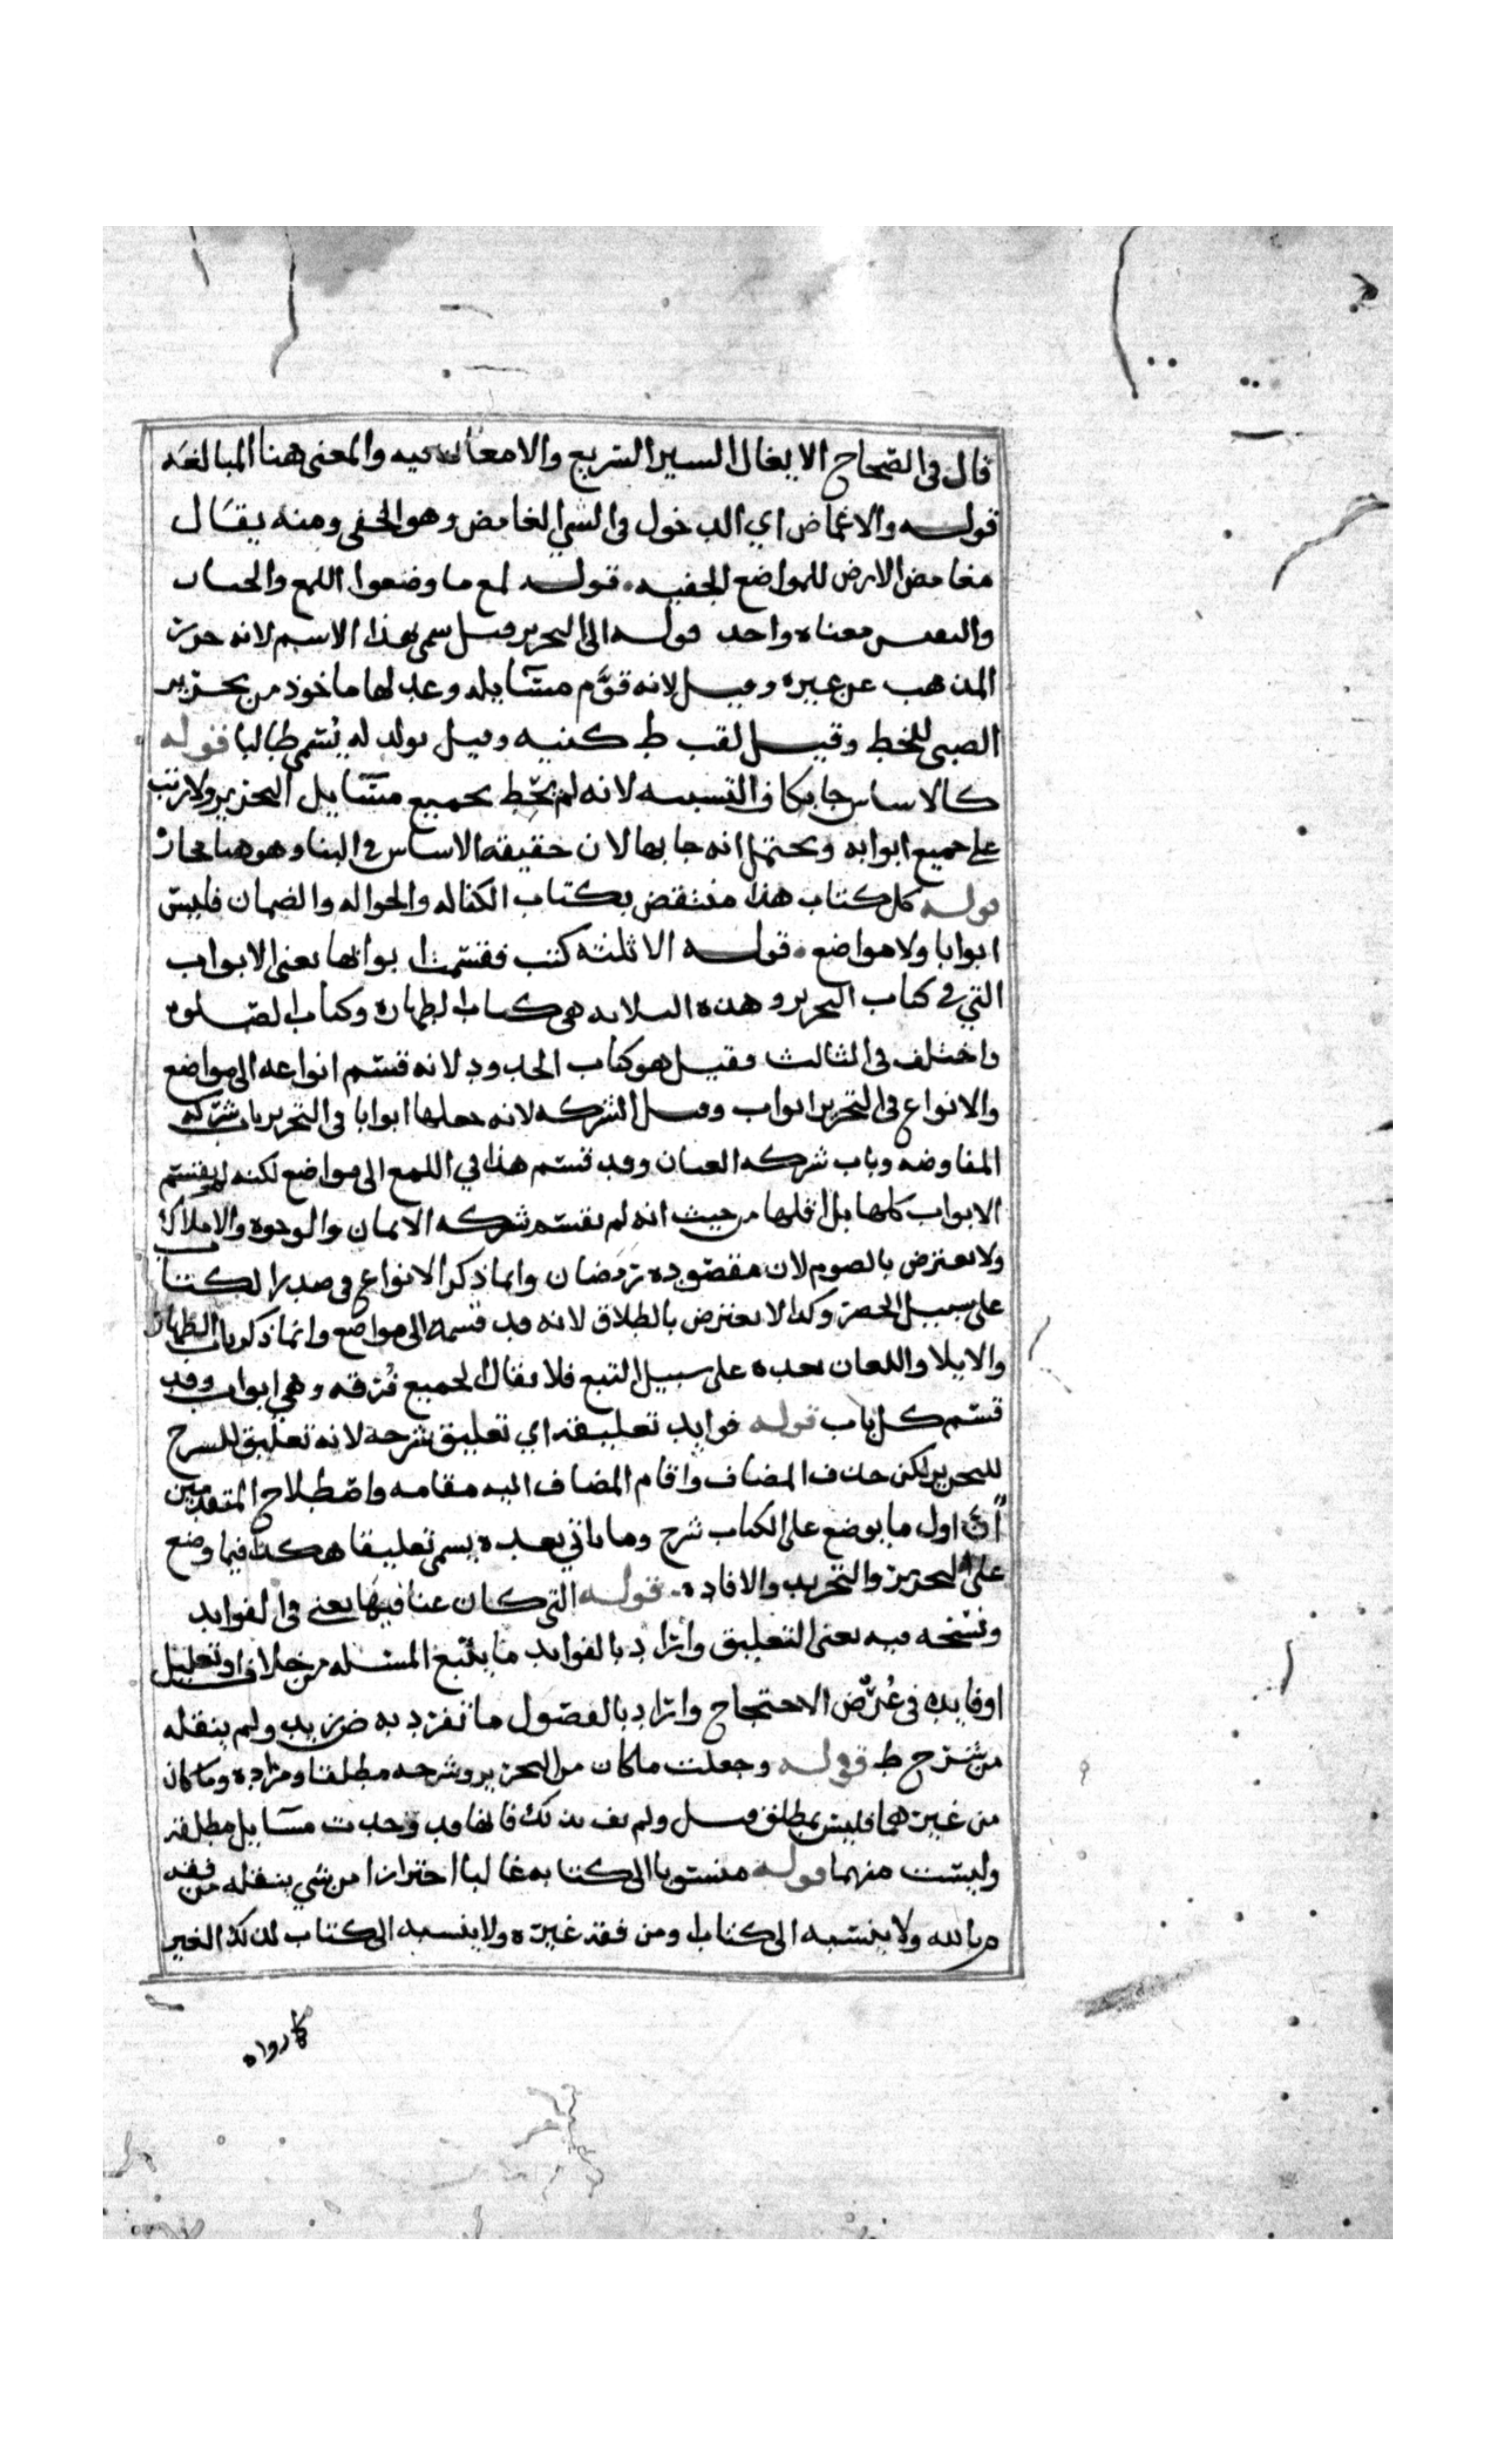 قال في الصحاح الايغال السير السريع والامعان فيه والمعنى هنا المبالغه
قوله والاغماض اي الدخول في الشي الغامض وهو الخفي ومنه يقال
مغامض الارض للمواضع الخفيه قوله لمع ما وضعوا اللمع والحساب
واحد قوله الى التحرير قيل سمي بهذا الاسم لانه حرر
المذهب عن غيره وقيل لانه قوَّم مسايله وعدلها ماخوذ من تحرير
الصبي للخط وقيل لقب ط كنيه وقيل بولد له يُسمى طالبا قوله
كالاساس جا بكاف التشبيه لانه لم يحط بجميع مسايل التحرير ولا رتب
على جميع ابوابه ويحتمل انه جا بها لان حقيقه الاساس في البنا وهو هنا مجاز
قوله كل كتاب هذا منتقض بكتاب الكفاله والحواله والضمان فليس
ابوابا ولا مواضع قوله الا ثلثه كتب فقسمت ابوابها يعني الابواب
التي في كتاب التحرير وهذه الثلاثه هي كتاب الطهاره وكتاب الصلوه
واختلف في الثالث فقيل هو كتاب الحدود لانه قسم انواعه الى مواضع
والانواع في التحرير ابواب وقيل الشركه لانه جعلها ابوابا في التحرير باب شركه
المفاوضه وباب شركه العنان وقد قسم هذا في اللمع الى مواضع لكنه لم يقسم
الابواب كلها بل اقلها من حيث انه لم يقسم شركه الابدان والوجوه والاملاك
ولا يعترض بالصوم لان مقصوده رمضان وانما ذكر الانواع في صدر الكتاب
على سبيل الحصر وكذا لا يعترض بالطلاق لانه قد قسمه الى مواضع وانما ذكر باب الظهار
والايلا واللعان بعده على سبيل التبع فلا يقال لجميع فُرقه وهي ابواب وقد
قسم كل باب قوله فوايد تعليقه اي تعليق شرحه لانه تعليق للشرح
للتحرير لكن حذف المضاف واقام المضاف اليه مقامه واصطلاح المتقدمين
ان اول ما يوضع على الكتاب شرح وما ياتي بعده يسمى تعليقا هكذا فيما وضع
على التحرير والتجريد والافاده قوله التي كان عنا فيها يعني في الفوايد
ونسخه فيه يعني التعليق واراد بالفوايد ما يتبع المسئله من خلاف او تعليل
او فايده في عُرْض الاحتجاج واراد بالفصول ما تفرد به ض زيد ولم ينقله
من شرح ط قوله وجعلت ما كان من التحرير وشرحه مطلقا ومراده وما كان
من غيرهما فليس بمطلق قيل ولم يف بذلك فانها قد وجدت مسايل مطلقه
وليست منهما قوله منسوبا الى كتابه غالبا احترازا من شي ينقله من فقه
م بالله ولا ينسبه الى كتاب ومن فقه غيره ولا ينسبه الى كتاب لذلك الغير
كما رواه